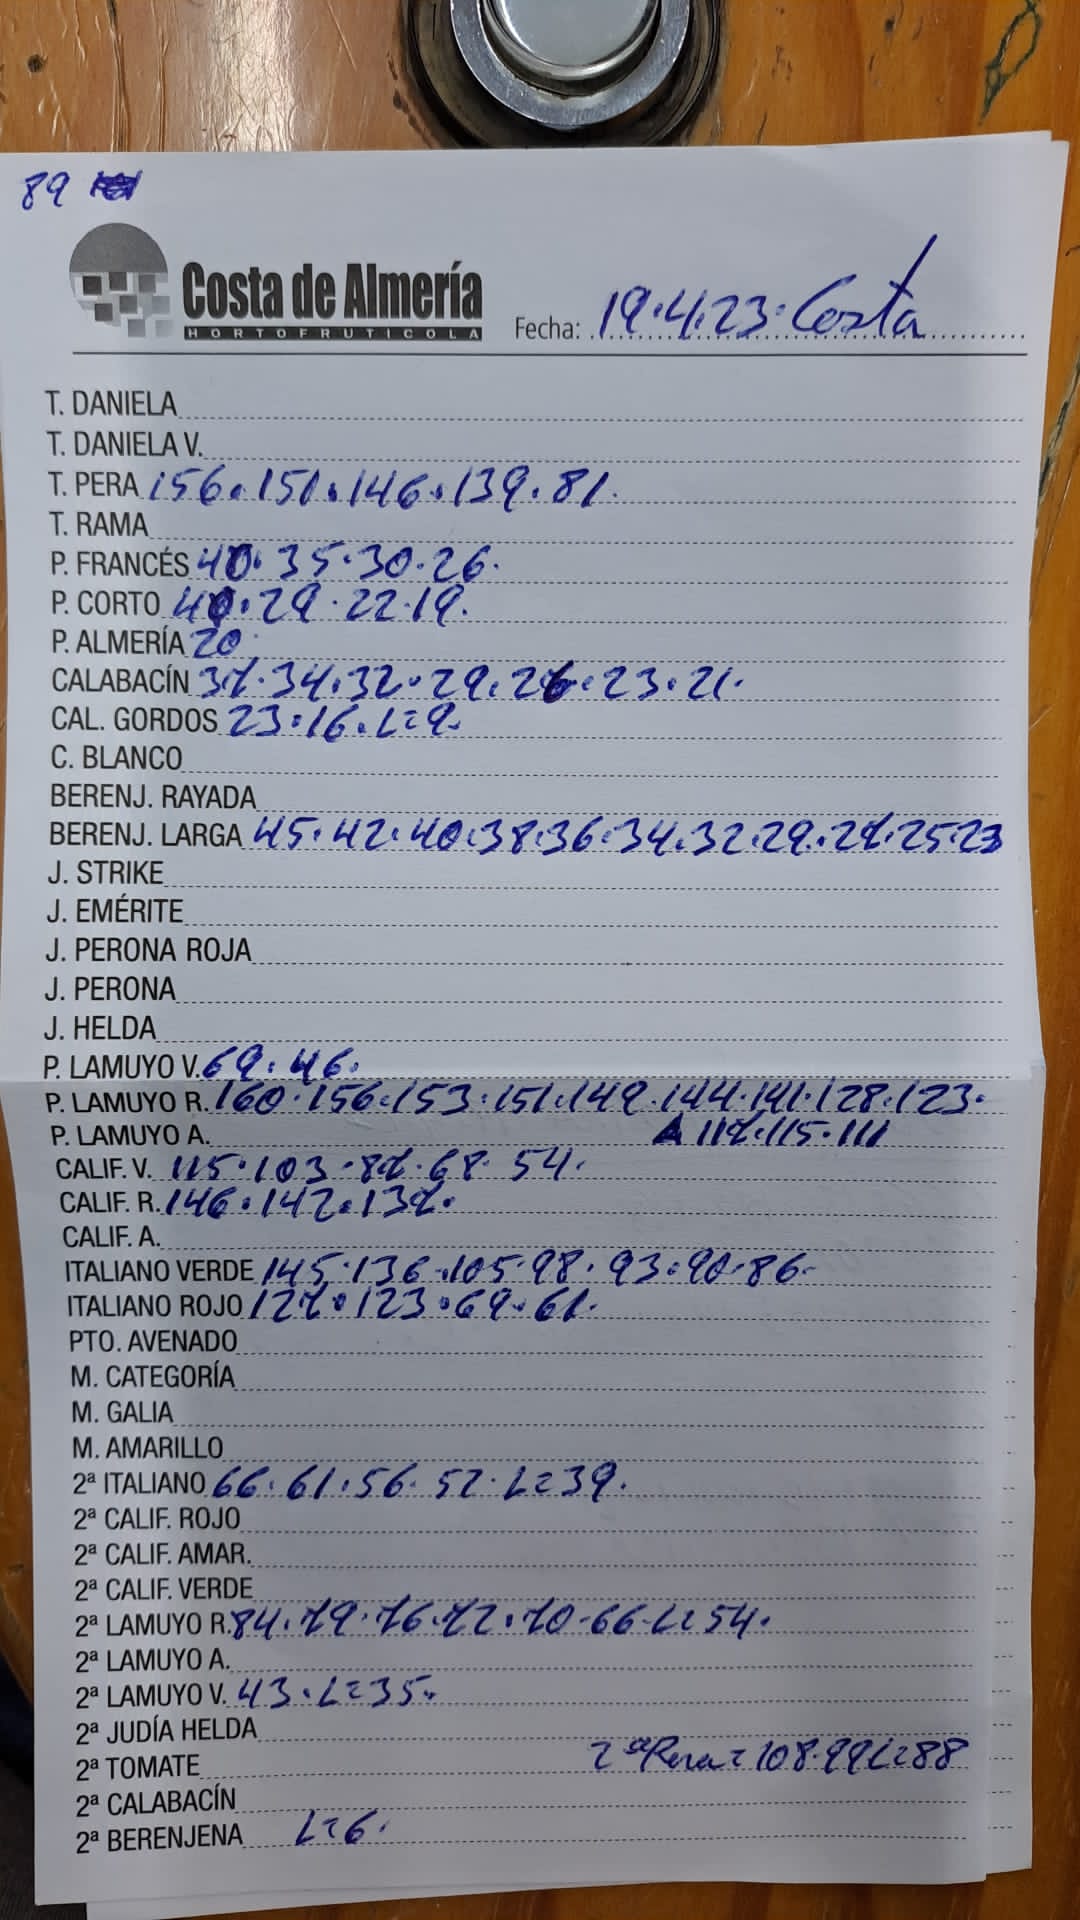 89
Costa de Almería
HORTOFRUTICOLA
Fecha: 19.4.23. Costa
T. DANIELA
T. DANIELA V.
T. PERA 156.151.146.139.81.
T. RAMA
P. FRANCÉS 40.35.30.26.
P. CORTO 40.29.22.19.
P. ALMERÍA 20.
CALABACÍN 37.34.32.29.26.23.21.
CAL. GORDOS 23.16.L=9.
C. BLANCO
BERENJ. RAYADA
BERENJ. LARGA 45.42.40.38.36.34.32.29.27.25.23
J. STRIKE
J. EMÉRITE
J. PERONA ROJA
J. PERONA
J. HELDA
P. LAMUYO V. 69.46.
P. LAMUYO R. 160.156.153.151.149.144.141.128.123.
P. LAMUYO A. A 117.115.111
CALIF. V. 115.103.87.68.54.
CALIF. R. 146.142.137.
CALIF. A.
ITALIANO VERDE 145.136.105.98.93.90.86.
ITALIANO ROJO 127.123.69.61.
PTO. AVENADO
M. CATEGORÍA
M. GALIA
M. AMARILLO
2ª ITALIANO 66.61.56.52.L=39.
2ª CALIF. ROJO
2ª CALIF. AMAR.
2ª CALIF. VERDE
2ª LAMUYO R. 84.79.76.72.70.66.L=54.
2ª LAMUYO A.
2ª LAMUYO V. 43.L=35.
2ª JUDÍA HELDA
2ª TOMATE 2ª Pera=108.99L=88
2ª CALABACÍN
2ª BERENJENA L=6.